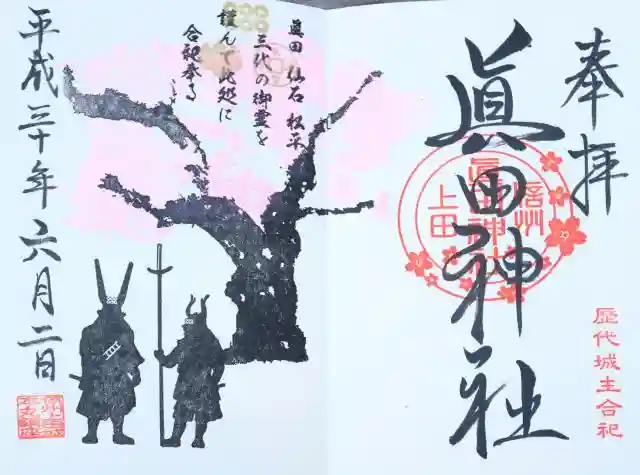 奉拝
眞田神社
信州
眞田神社
上田
歴代城主合祀
眞田 仙石 松平
三代の御霊を
謹んで此処に
合祀奉る
平成三十年六月二日